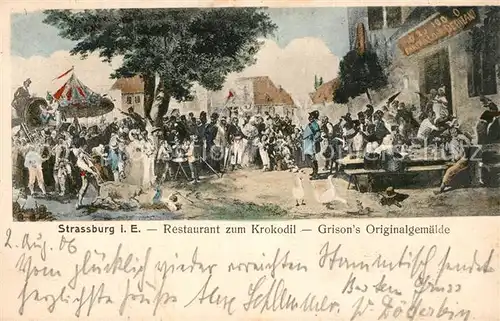 Strassburg i. E. — Restaurant zum Krokodil — Grison's Originalgemälde
2. Aug. 06
Vom glücklich wieder erreichten Stammtisch sendet
herzlichste Grüsse Alex Schlemmer.
Besten Gruss